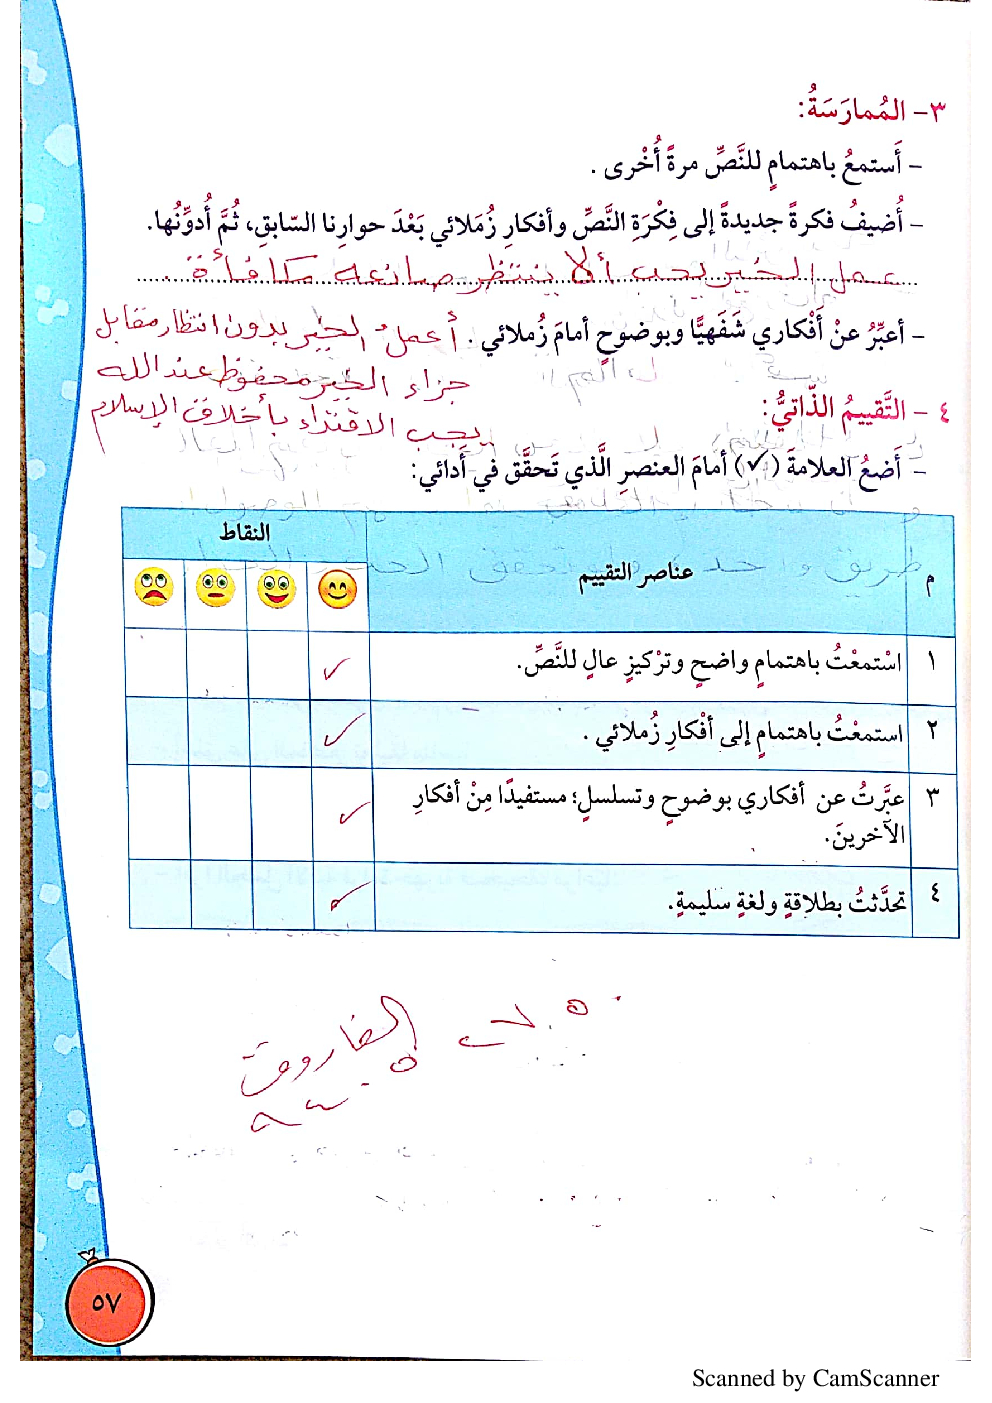 ٣- المُمارَسَةُ:
- أَستمعُ باهتمامٍ للنَّصِّ مرةً أُخْرى .
- أُضيفُ فكرةً جديدةً إلى فِكْرَةِ النَّصِّ وأفكارِ زُمَلائي بَعْدَ حوارِنا السّابقِ، ثُمَّ أُدوِّنُها.
عمل الخير يجب ألا ينتظر صانعه مكافأة.
- أعبِّرُ عنْ أَفْكاري شَفَهيًّا وبوضوحٍ أمامَ زُملائي . أعمل الخير بدون انتظار مقابل
جزاء الخير محفوظ عند الله
يجب الاقتداء بأخلاق الإسلام
٤ - التَّقييمُ الذّاتيُّ:
- أَضعُ العلامةَ (✓) أمامَ العنصرِ الَّذي تَحقَّق في أَدائي:
م عناصر التقييم النقاط
١ اسْتمعْتُ باهتمامٍ واضحٍ وترْكيزٍ عالٍ للنَّصِّ. ✓
٢ استمعْتُ باهتمامٍ إلى أفْكارِ زُملائي . ✓
٣ عبَّرتُ عن أفكاري بوضوحٍ وتسلسلٍ؛ مستفيدًا مِنْ أفكارِ ✓
الآخرينَ.
٤ تحدَّثتُ بطلاقةٍ ولغةٍ سليمةٍ. ✓
الفاروق
٥٧
Scanned by CamScanner